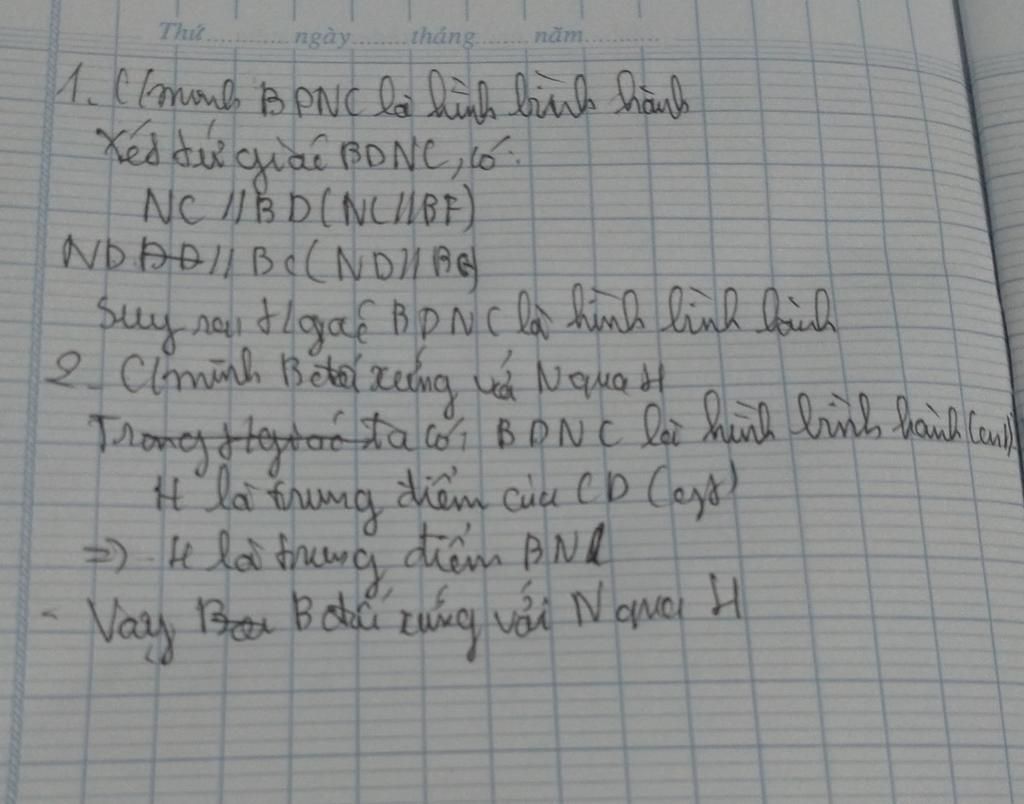 Thứ.............ngày........tháng.......năm............
1. C/minh BDNC là hình bình hành
Xét tứ giác BDNC, có:
NC // BD (NC // BF)
ND // BC (ND // BC)
Suy ra t/giác BDNC là hình bình hành
2. C/minh B đối xứng với N qua H
ta có: BDNC là hình bình hành (cm1)
H là trung điểm của CD (gt)
=> H là trung điểm BN
- Vậy B đối xứng với N qua H